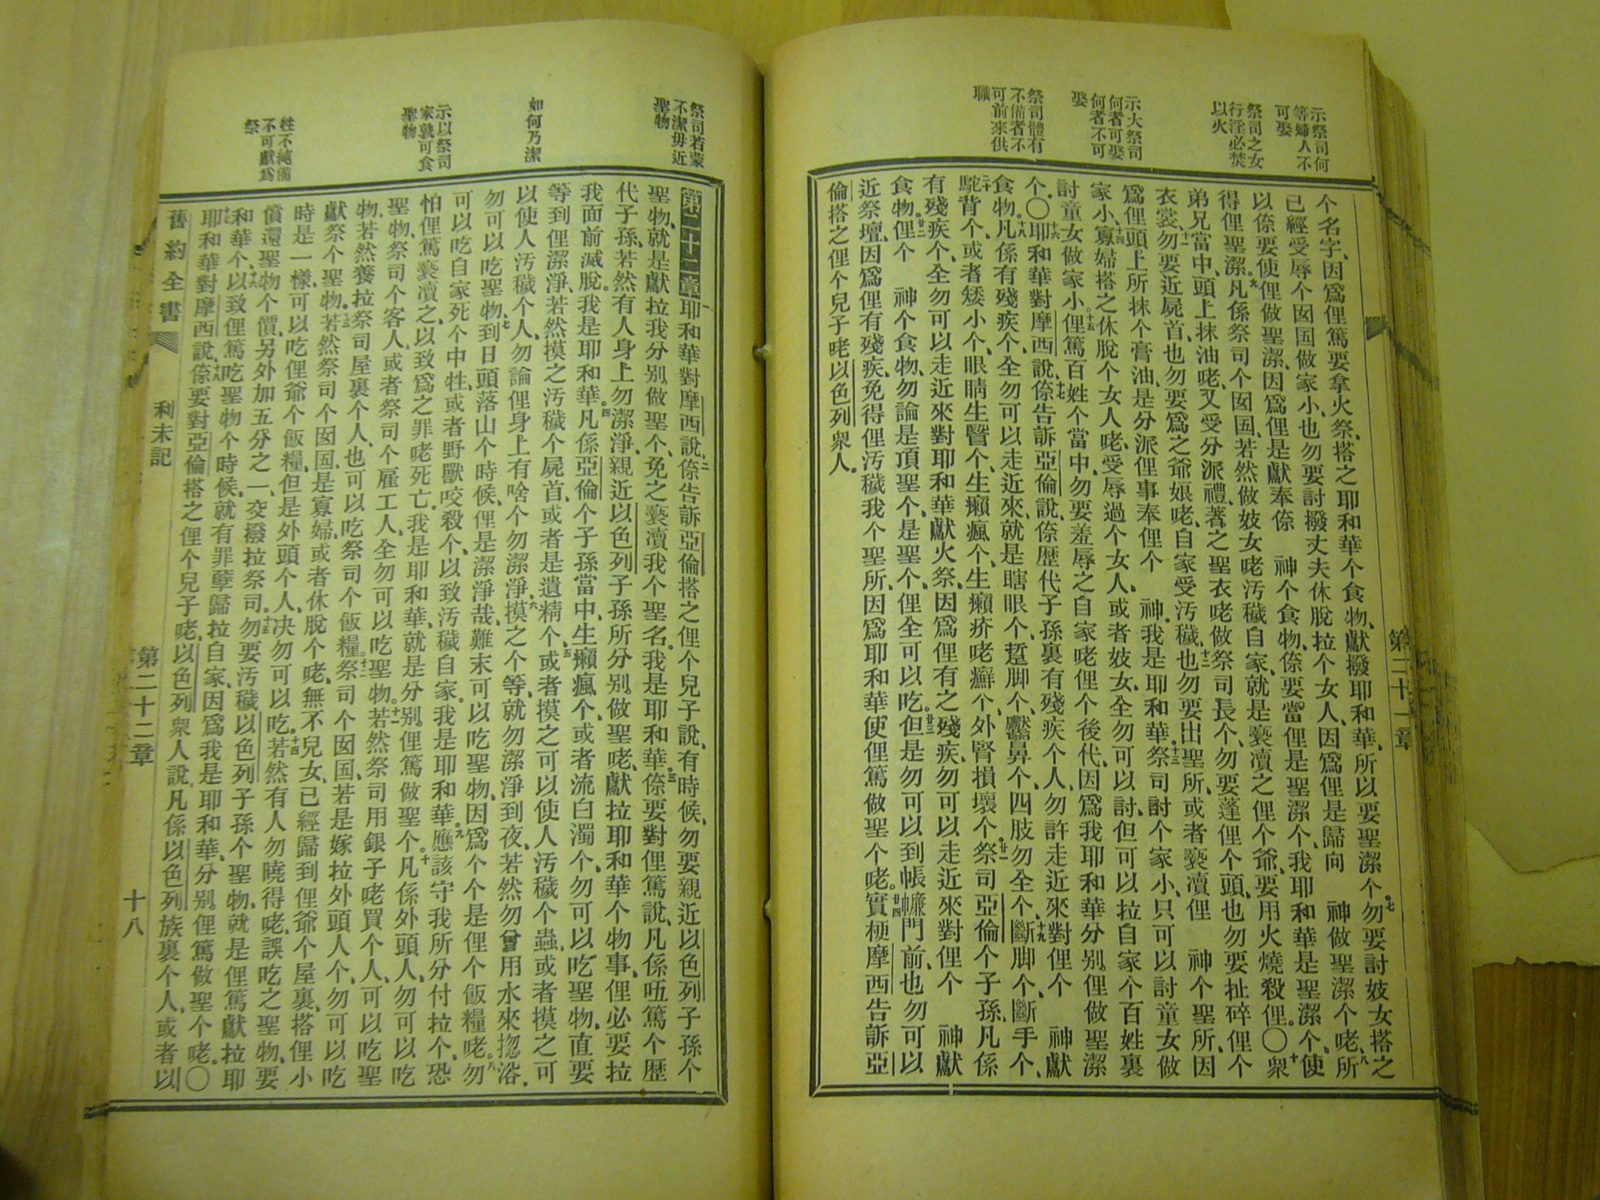 示祭司何
等婦人不
可娶
祭司之女
行淫必焚
以火
示大祭司
何者可娶
何者不可
娶
祭司體有
不備者不
可前來供
職
第二十一章
个名字、因爲俚篤要拿火祭、搭之耶和華个食物、獻撥耶和華、所以要聖潔个。七勿要討妓女、搭之
已經受辱个囡国做家小、也勿要討撥丈夫休脫拉个女人、因爲俚是歸向　神做聖潔个咾、八所
以倷要使俚做聖潔、因爲俚是獻奉倷　神个食物、倷要當俚是聖潔个、我耶和華是聖潔个、使
得俚聖潔。九凡係祭司个囡国、若然做妓女咾汚穢自家、就是褻瀆之俚个爺、要用火燒殺俚。〇十衆
弟兄當中、頭上抹油咾、又受分派禮、著之聖衣咾做祭司長个、勿要蓬俚个頭、也勿要扯碎俚个
衣裳、十一勿要近屍首、也勿要爲之爺娘咾、自家受汚穢、十二也勿要出聖所、或者褻瀆俚　神个聖所、因
爲俚頭上所抹个膏油、是分派俚事奉俚个　神、我是耶和華。十三祭司討个家小、只可以討童女做
家小、十四寡婦搭之休脫个女人咾、受辱過个女人、或者妓女、全勿可以討、但可以拉自家个百姓裏
討童女做家小。十五俚篤百姓个當中、勿要羞辱之自家咾俚个後代、因爲我耶和華分别俚做聖潔
个。〇十六耶和華對摩西說、十七倷告訴亞倫說、倷歷代子孫裏有殘疾个人、勿許走近來對俚个　神獻
食物。十八凡係有殘疾个、全勿可以走近來、就是瞎眼个、蹩脚个、壓鼻个、四肢勿全个、十九斷脚个、斷手个、
二十駝背个、或者矮小个、眼睛生瞖个、生癩瘋个、生癩疥咾癬个、外腎損壞个。廿一祭司亞倫个子孫、凡係
有殘疾个、全勿可以走近來對耶和華獻火祭、因爲俚有之殘疾、勿可以走近來對俚个　神獻
食物。廿二俚个　神个食物、勿論是頂聖个、是聖个、俚全可以吃。廿三但是勿可以到帳幰門前、也勿可以
近祭壇、因爲俚有殘疾、免得俚汚穢我个聖所、因爲耶和華使俚篤做聖个咾。廿四實梗摩西告訴亞
倫搭之俚个兒子咾以色列衆人。
祭司若蒙
不潔毋近
聖物
如何乃潔
示以祭司
家孰可食
聖物
牲不純備
不可獻爲
祭
第二十二章一耶和華對摩西說、二倷告訴亞倫搭之俚个兒子說、有時候、勿要親近以色列子孫个
聖物、就是獻拉我分别做聖个、免之褻瀆我个聖名、我是耶和華。三倷要對俚篤說、凡係㕶篤个歷
代子孫、若然有人身上勿潔淨、親近以色列子孫所分别做聖咾、獻拉耶和華个物事、俚必要拉
我面前滅脫、我是耶和華。四凡係亞倫个子孫當中、生癩瘋个、或者流白濁个、勿可以吃聖物、直要
等到俚潔淨、若然摸之汚穢个屍首、或者是遺精个、五或者摸之可以使人汚穢个蟲、或者摸之可
以使人汚穢个人、勿論俚身上有啥个勿潔淨、六摸之个等、就勿潔淨到夜、若然勿曾用水來揔浴、
勿可以吃聖物、七到日頭落山个時候、俚是潔淨哉、難末可以吃聖物、因爲个个是俚个飯糧咾。八勿
可以吃自家死个中牲、或者野獸咬殺个、以致汚穢自家、我是耶和華。九應該守我所分付拉个、恐
怕俚篤褻瀆之、以致爲之罪咾死亡、我是耶和華、就是分别俚篤做聖个。十凡係外頭人、勿可以吃
聖物、祭司个客人、或者祭司个雇工人、全勿可以吃聖物、十一若然祭司用銀子咾買个人、可以吃聖
物、若然養拉祭司屋裏个人、也可以吃祭司个飯糧。十二祭司个囡国、若是嫁拉外頭人个、勿可以吃
獻祭个聖物、十三若然祭司个囡国、是寡婦、或者休脫个咾、無不兒女、已經歸到俚爺个屋裏、搭俚小
時是一樣、可以吃俚爺个飯糧、但是外頭个人、决勿可以吃。十四若然有人勿曉得咾、誤吃之聖物、要
償還聖物个價、另外加五分之一、交撥拉祭司。十五勿要汚穢以色列子孫个聖物、就是俚篤獻拉耶
和華个、十六以致俚篤吃聖物个時候、就有罪孽歸拉自家、因爲我是耶和華、分别俚篤做聖个咾。〇
十七耶和華對摩西說、十八倷要對亞倫搭之俚个兒子咾、以色列衆人說、凡係以色列族裏个人、或者以
舊約全書
利未記
第二十二章
十八